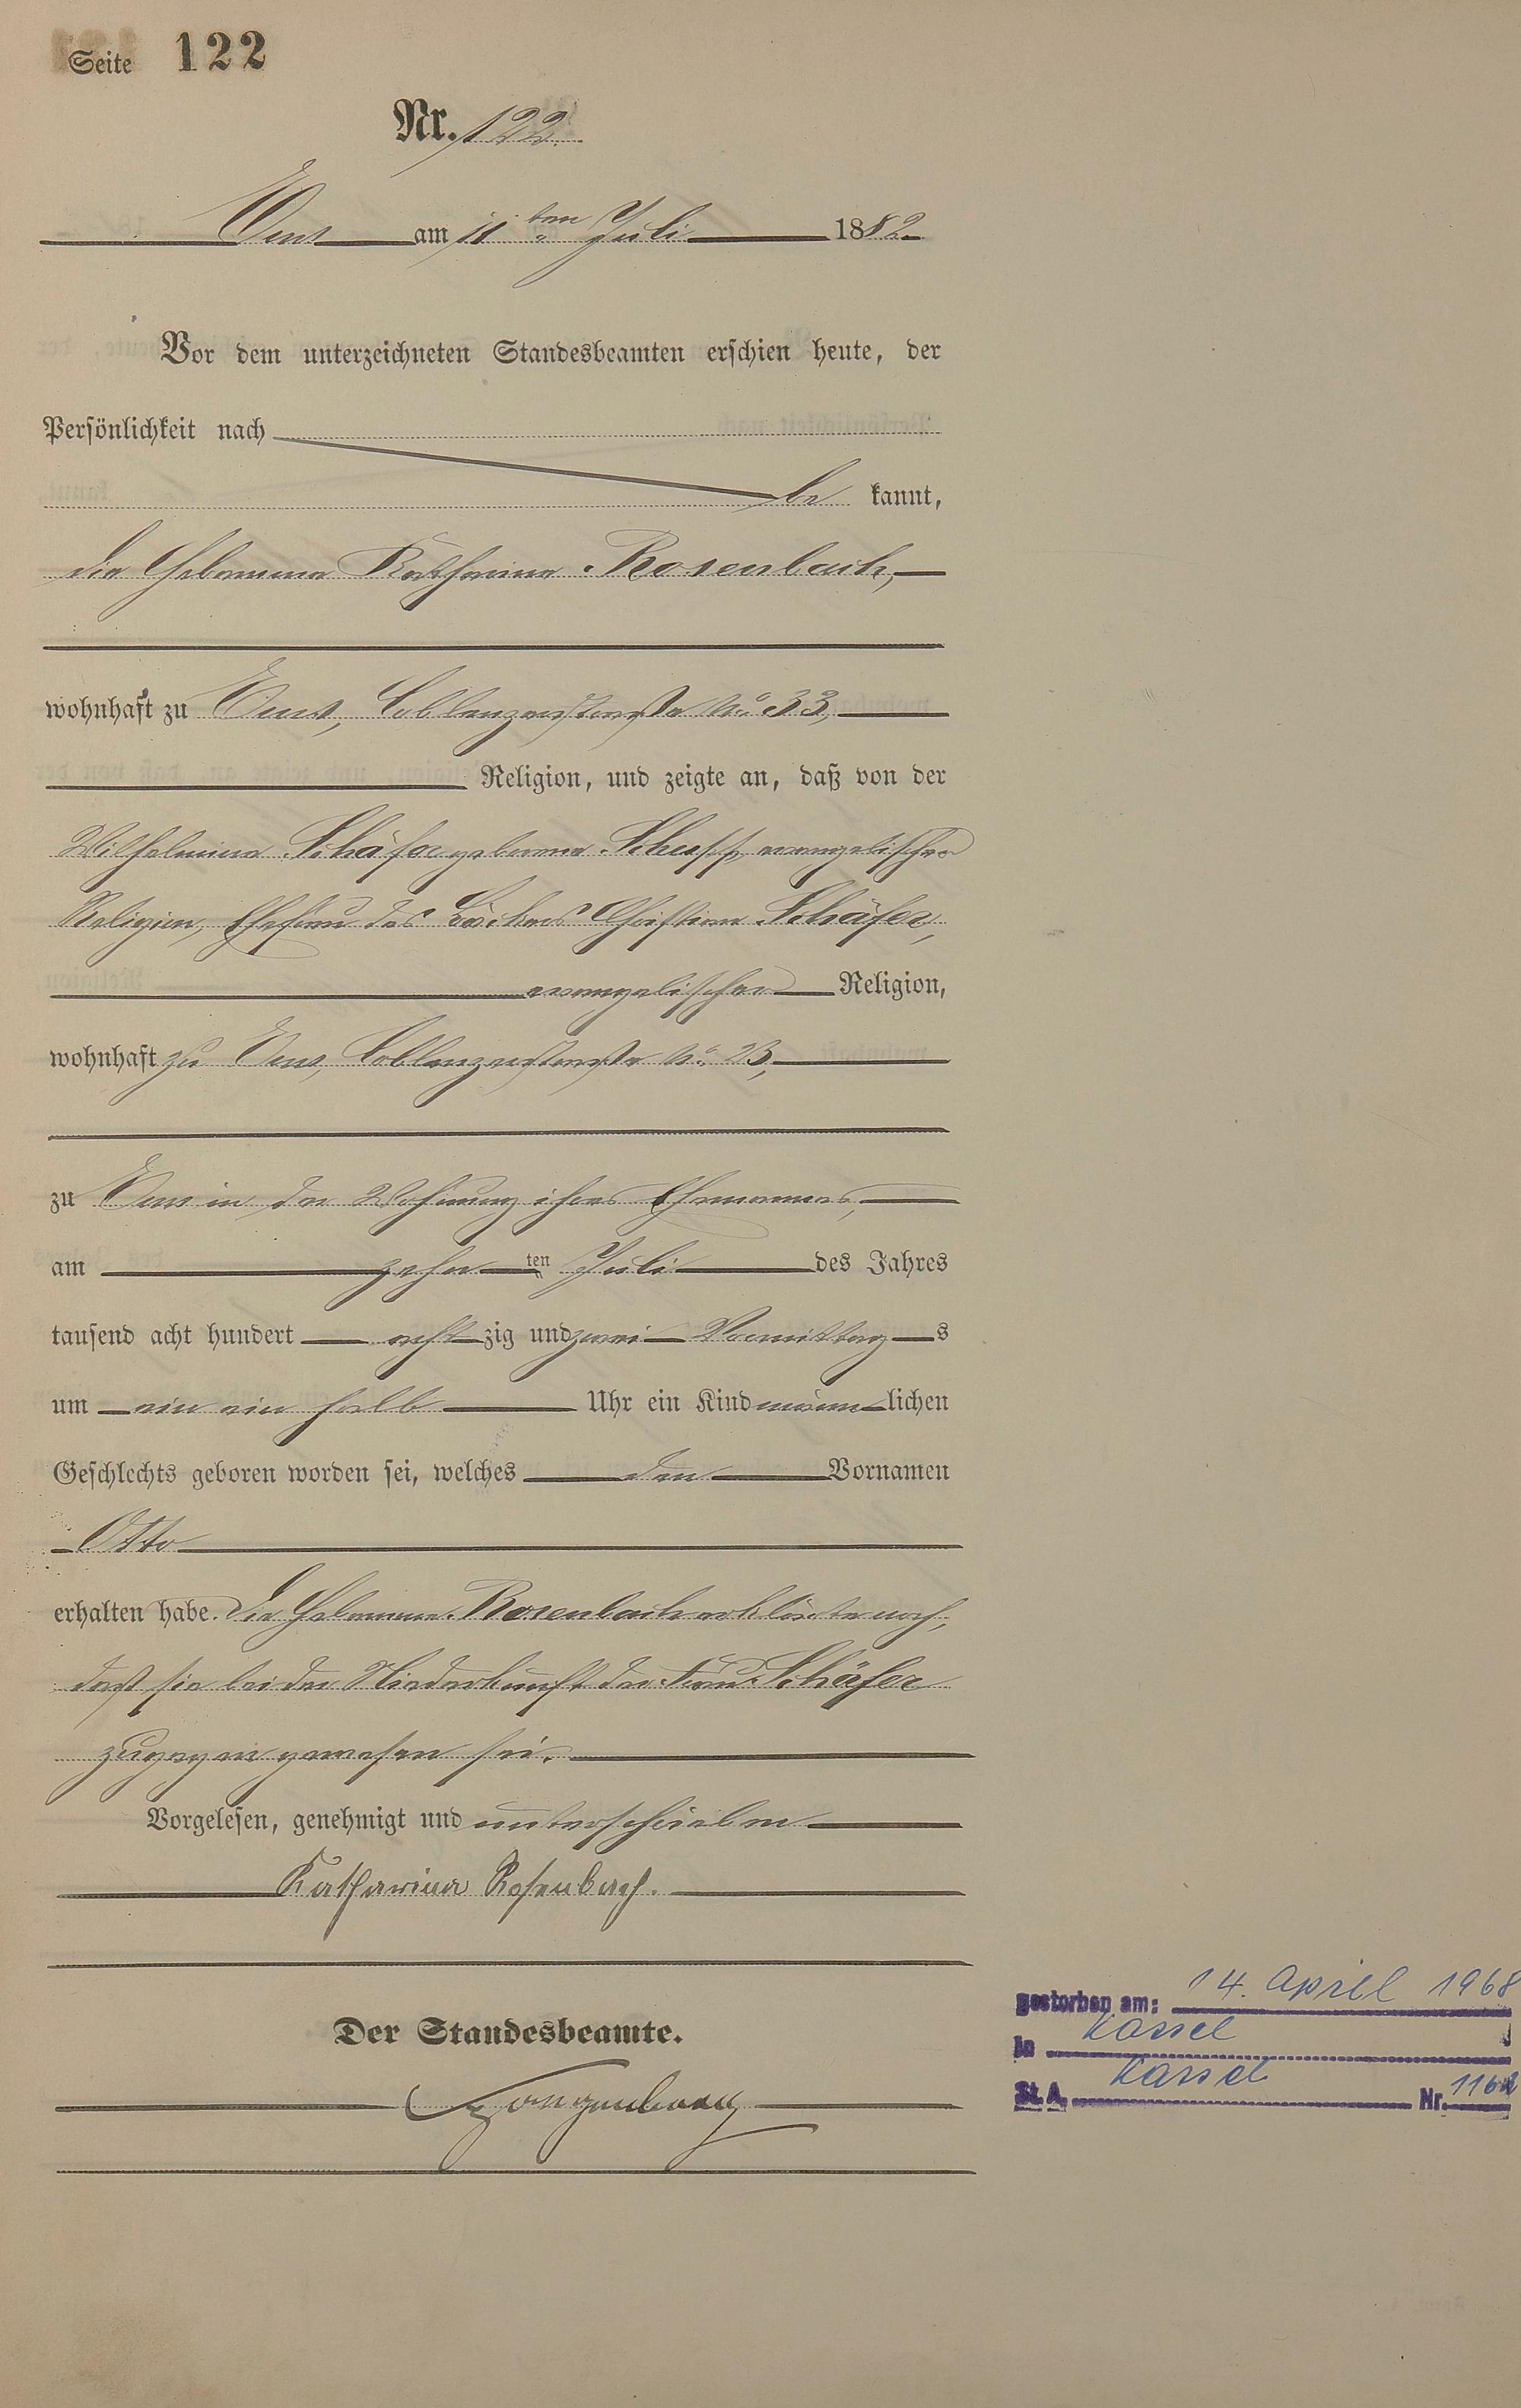 Seite 122
Nr. 122.
Ems am 11ten Juli 1882
Vor dem unterzeichneten Standesbeamten erschien heute, der
Persönlichkeit nach
be kannt,
die Hebamme Katharina Rosenbach,
wohnhaft zu Ems, Coblenzerstraße No 33,
Religion, und zeigte an, daß von der
Wilhelmine Schäfer geborene evangelischer
Religion, Ehefrau des Bäckers Christian Schäfer,
evangelischer Religion,
wohnhaft zu Ems, Coblenzerstraße No 23,
zu Ems in der Wohnung ihres Ehemannes,
am zehnten Juli des Jahres
tausend acht hundert achtzig und zwei Vormittags
um ein ein halb Uhr ein Kind männlichen
Geschlechts geboren worden sei, welches den Vornamen
Otto
erhalten habe. Die Hebamme Rosenbach erklärte noch,
daß sie bei der Niederkunft der Frau Schäfer
zugegen gewesen sei.
Vorgelesen, genehmigt und unterschrieben
Katharina Rosenbach.
Der Standesbeamte.
gestorben am: 14. April 1968
in Kassel
St. A. Kassel Nr.